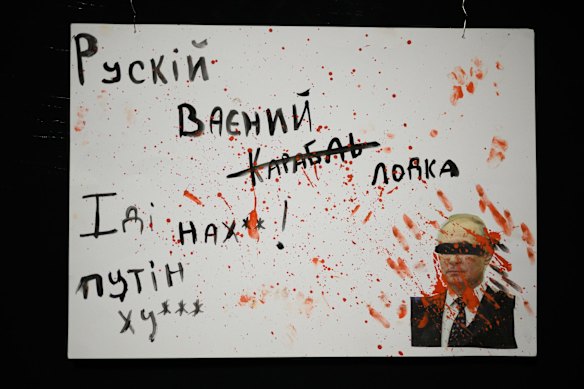 Рускій
Ваєний
Карабль лодка
Іді нах**!
путін
ху***